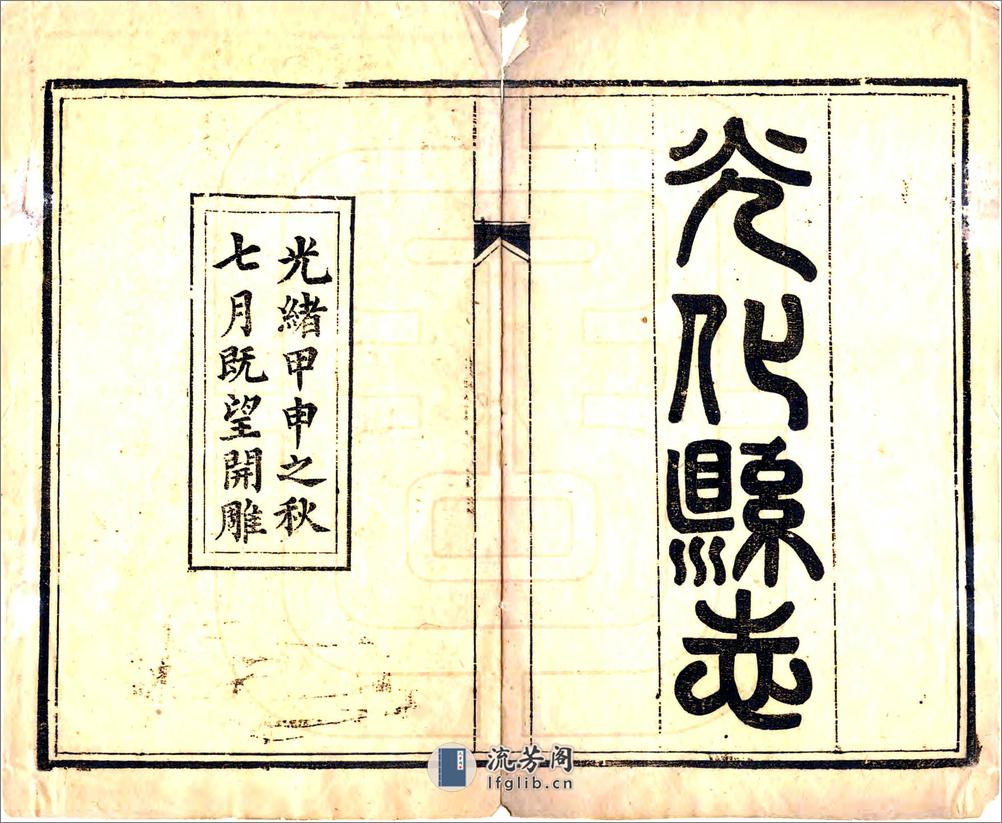 光化縣志
光緒甲申之秋
七月既望開雕
流芳阁
lfglib.cn